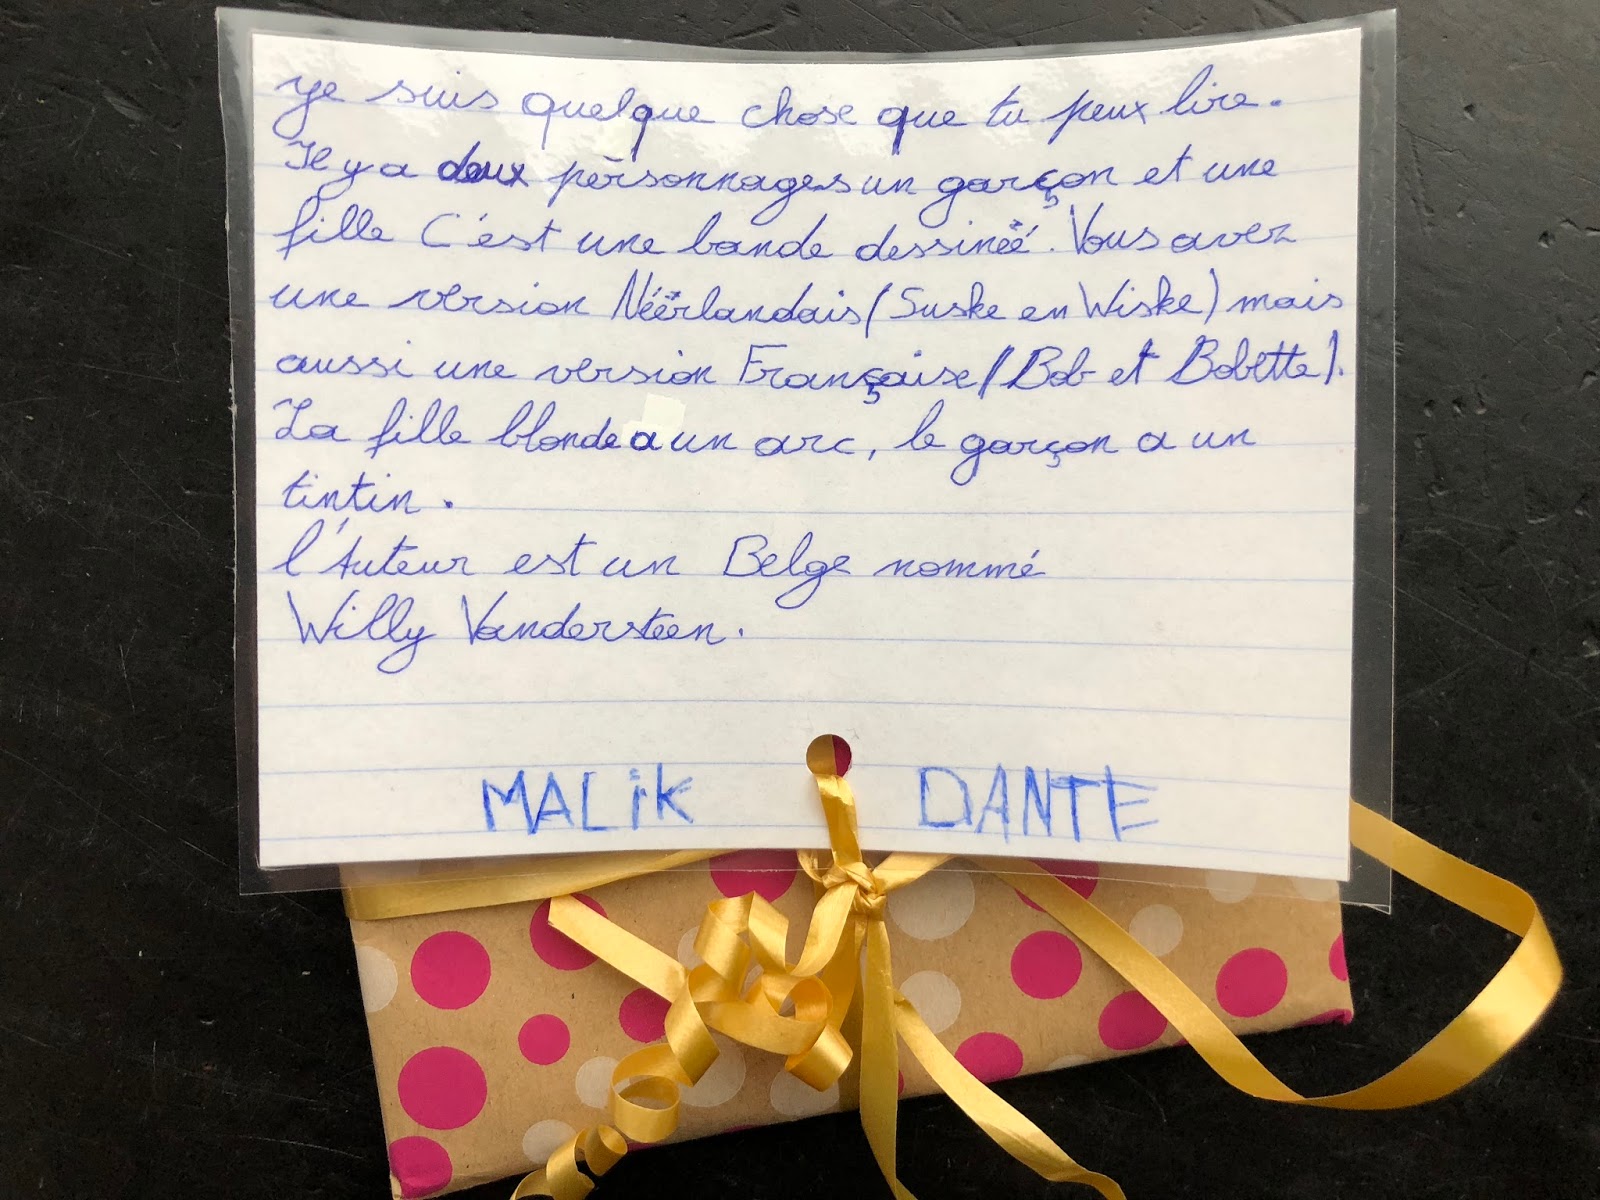 Je suis quelque chose que tu peux lire.
Il y a deux pérsonnages un garçon et une
fille C'est une bande dessineé. Vous avez
une version Néérlandais (Suske en Wiske) mais
aussi une version Française (Bob et Bobette).
La fille blonde a un arc, le garçon a un
tintin.
l'Auteur est un Belge nommé
Willy Vandersteen.
MALiK DANTE